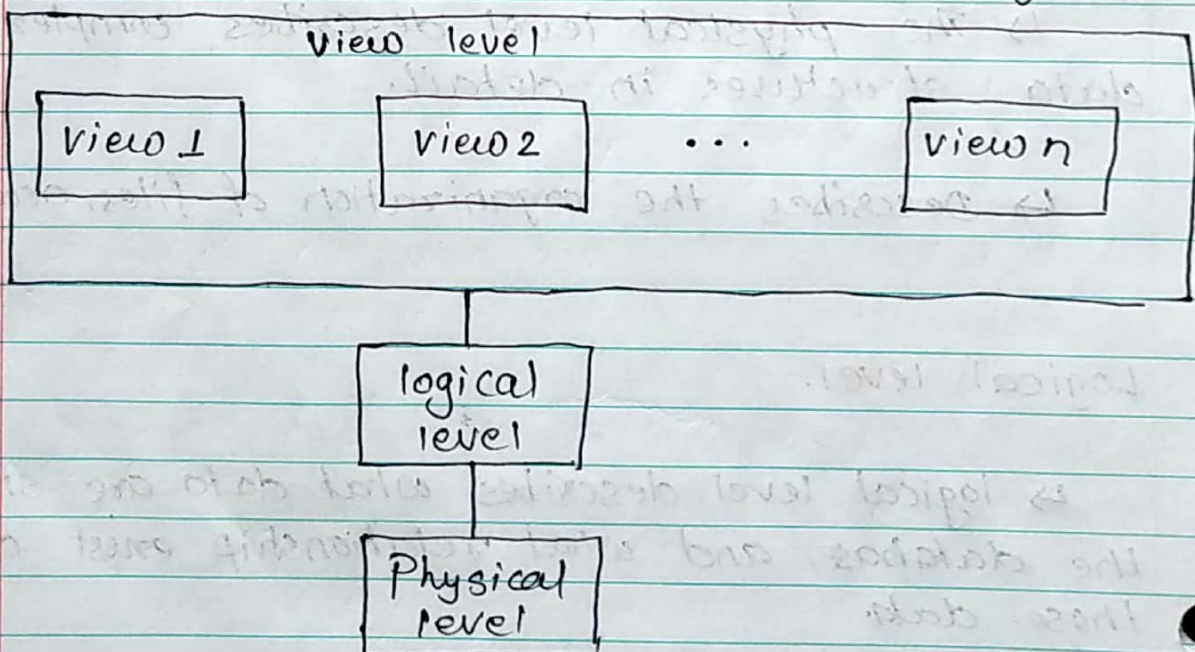 View level
View 1 View 2 ... View n
logical
level
Physical
level